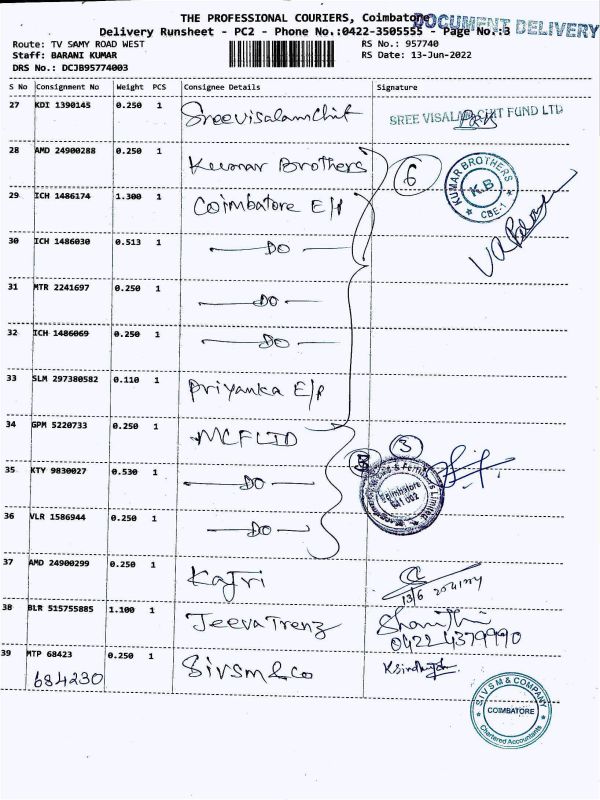 THE PROFESSIONAL COURIERS, Coimbatore
DOCUMENT DELIVERY
Delivery Runsheet - PC2 - Phone No.:0422-3505555 - Page No.:3
Route: TV SAMY ROAD WEST
RS No.: 957740
Staff: BARANI KUMAR
RS Date: 13-Jun-2022
DRS No.: DCJB95774003
S No Consignment No Weight PCS Consignee Details Signature
27 KDI 1390145 0.250 1 Sreevisalamchit SREE VISALAM CHIT FUND LTD
28 AMD 24900288 0.250 1 Kumar Brothers 6 KUMAR BROTHERS K.B CBE-1
29 ICH 1486174 1.300 1 Coimbatore E/P
30 ICH 1486030 0.513 1 DO
31 MTR 2241697 0.250 1 DO
32 ICH 1486069 0.250 1 DO
33 SLM 297380582 0.110 1 Priyanka E/P
34 GPM 5220733 0.250 1 MCFLTD 3
35 KTY 9830027 0.530 1 DO & Fertilizers Limited Coimbatore 641 002
36 VLR 1586944 0.250 1 DO
37 AMD 24900299 0.250 1 Kajri 13/6
38 BLR 515755885 1.100 1 Jeeva Trenz Shanthi
0422 4379990
39 MTP 68423 0.250 1 Sivsm & Co
684230
SIVSM & COMPANY COIMBATORE Chartered Accountants